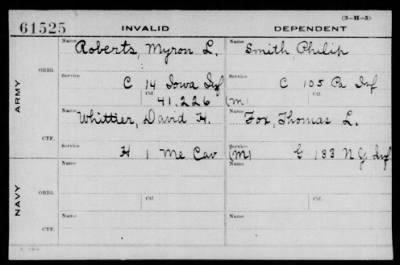 (3-H-3)
61525 INVALID DEPENDENT
Name Roberts, Myron L. Name Smith Philip
ORIG.
Service C 14 Iowa Inf Service C 105 Pa Inf
ARMY
Ctf. 41.226 (m) Ctf.
Name Whittier, David H. Name Fox, Thomas L.
CTF.
Service H 1 Me Cav Service (m) E 133 N.Y. Inf
Name Ctf. Name Ctf.
ORIG.
NAVY
Service Service
Name Ctf. Name Ctf.
CTF.